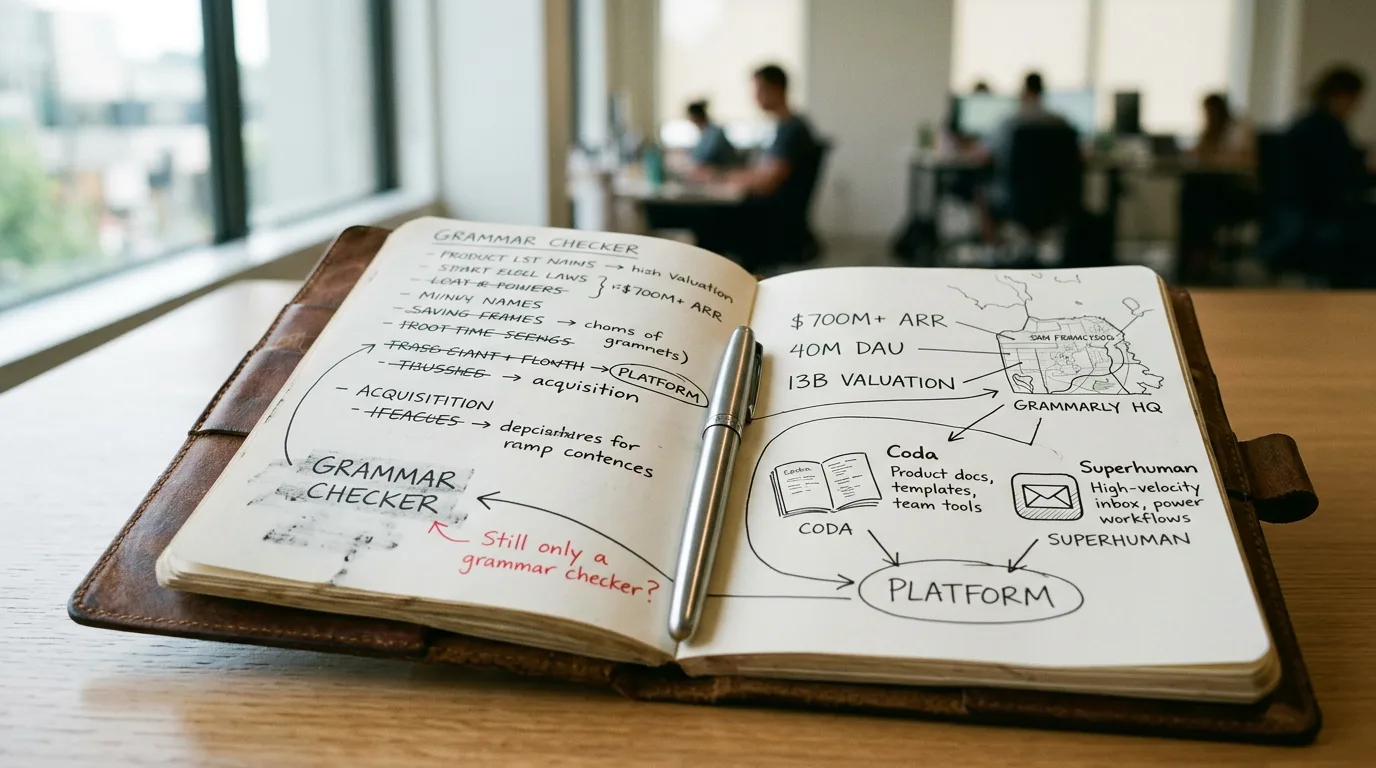 GRAMMAR CHECKER
- PRODUCT LST NAINS → high valuation
- START ELGL LAWS
- LOAT & POWERS
≈$700M+ ARR
- MINNY NAMES
- SAVING FRAMES → choms of grammets)
- TROOT TIME SEENGS
- TRASG GIANT + FLONTH → PLATFORM
- TBUSSHES → acquisition
- ACQUISITITION
- IFEACLES → depciahdures for
ramp contences
GRAMMAR
CHECKER
Still only a
grammar checker?
$700M+ ARR
40M DAU
13B VALUATION
SAM FRANCYSOO
GRAMMARLY HQ
Coda
Product docs,
templates,
team tools
Coda
CODA
Superhuman
High-velocity
inbox, power
workflows
SUPERHUMAN
PLATFORM